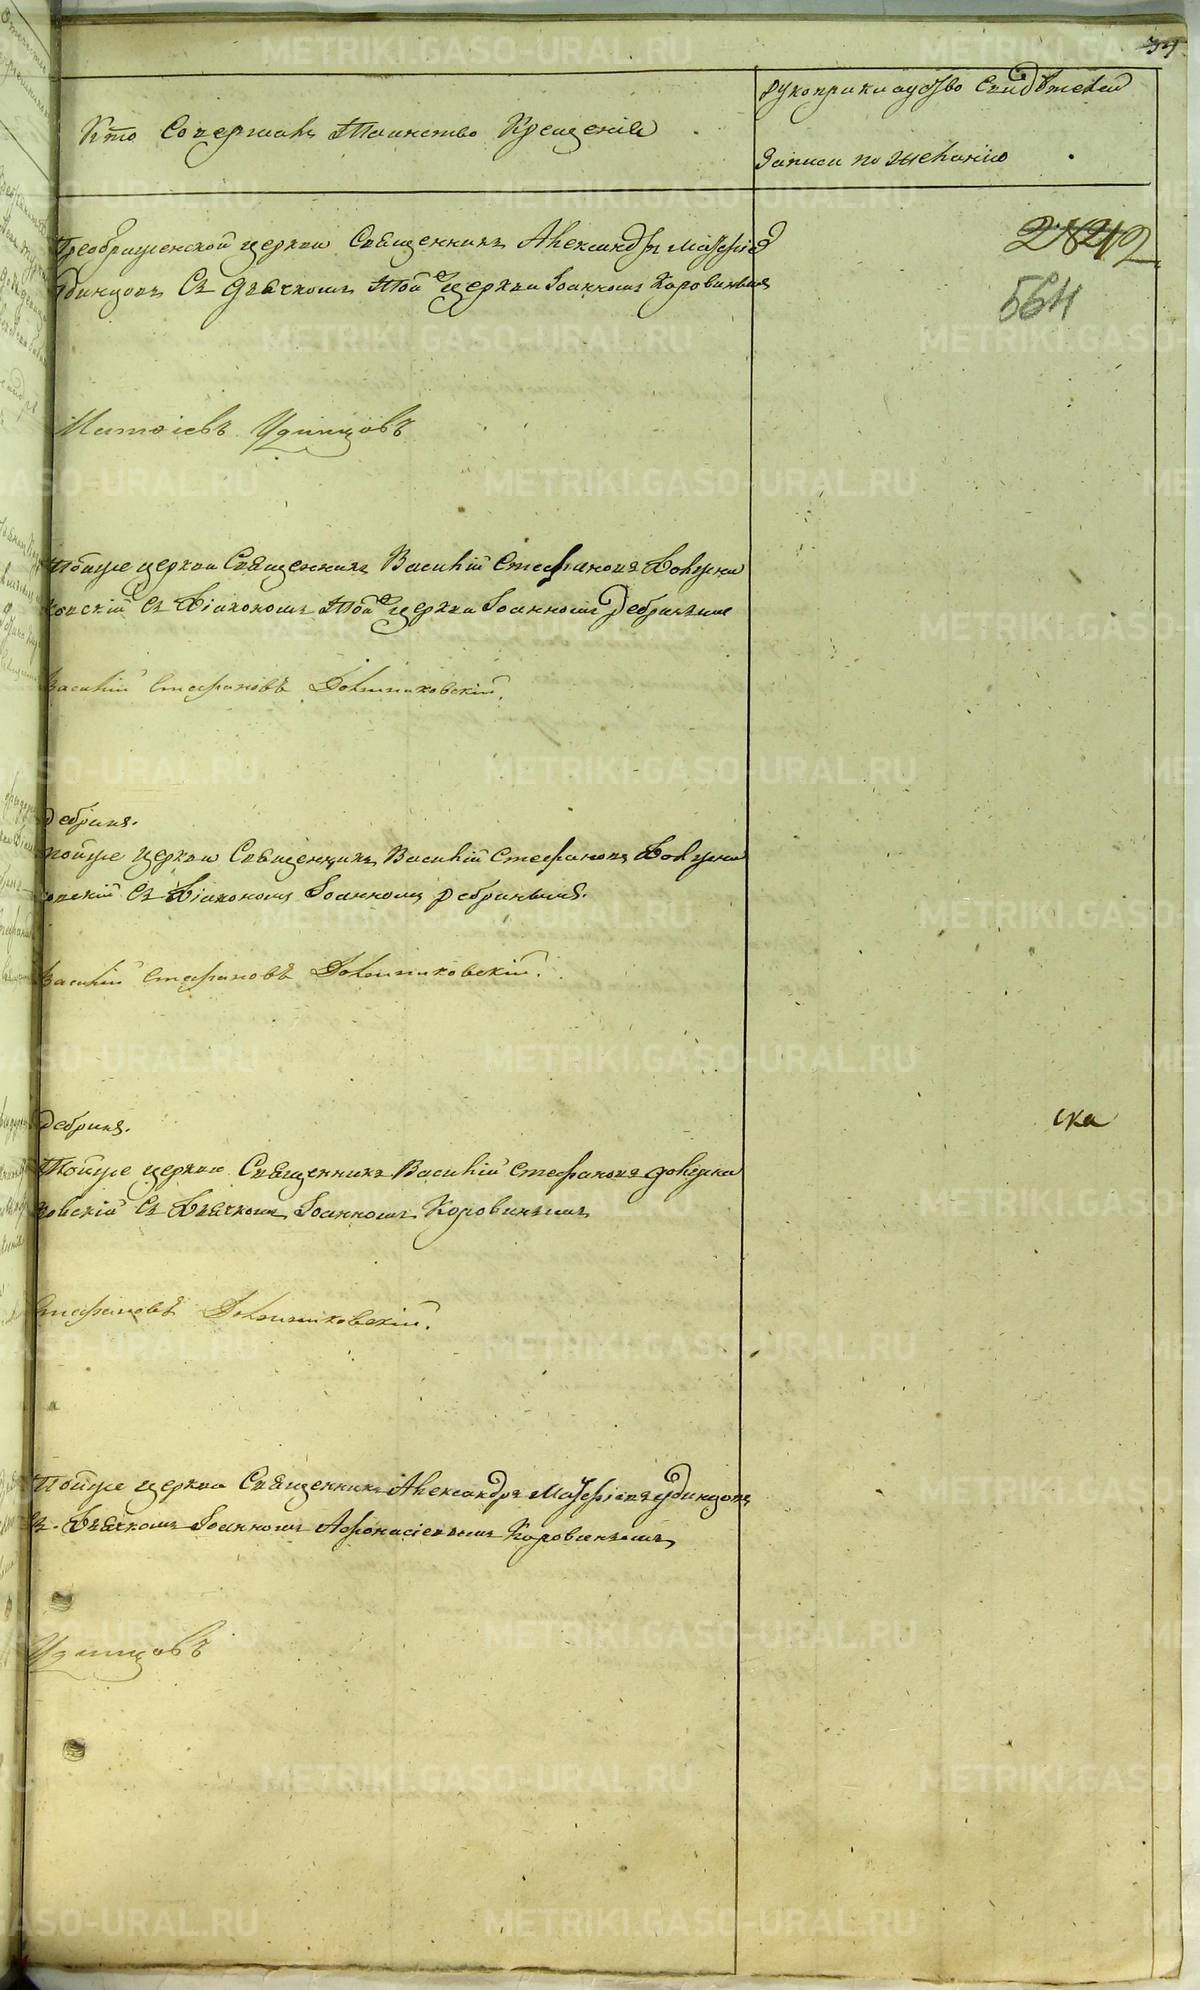 Кто Совершалъ Таинство Крещенія
рукоприкладство Свидѣтелей
Записи по желанію
Преображенской церкви Священникъ Александръ Матфіевъ
Удинцовъ Съ Дьячкомъ той церкви Іоанномъ Коровинымъ
564
Матѳіевъ Удинцовъ
Тойже церкви Священникъ Василій Стефановъ Долмати
ковскій Съ Діакономъ той церкви Іоанномъ Дебринымъ
Василій Стефановъ
Дебринъ.
тойже церкви Священникъ Василій Стефановъ
Съ Діакономъ Іоанномъ Дебринымъ.
Василій Стефановъ
ска
Дебринъ.
Тойже церкви Священникъ Василій Стефановъ
Съ Дьячкомъ Іоанномъ Коровинымъ
Стефановъ
Тойже церкви Священникъ Александръ Матфіевъ Удинцовъ
Съ Дьячкомъ Іоанномъ Афонасіевымъ Коровинымъ
Удинцовъ
METRIKI.GASO-URAL.RU